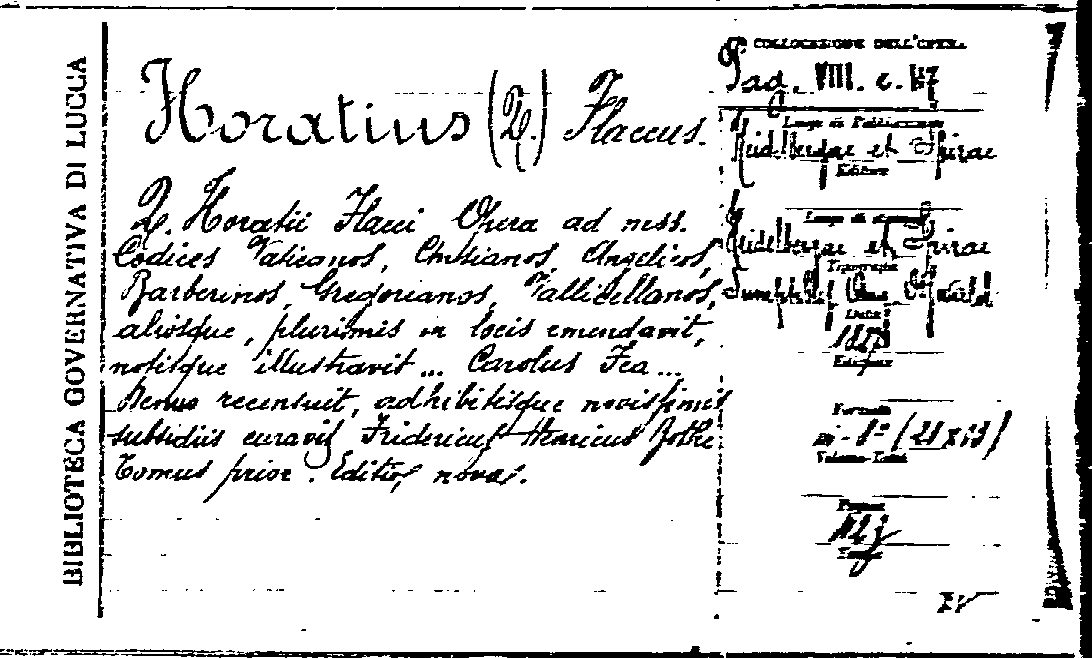 BIBLIOTECA GOVERNATIVA DI LUCCA
Horatius (Q.) Flaccus.
Q. Horatii Flacci Opera ad mss.
Codices Vaticanos, Chisianos, Angelicos,
Barberinos, Gregorianos, Vallicellanos,
aliosque, plurimis in locis emendavit,
notisque illustravit ... Carolus Fea ...
Denuo recensuit, adhibitisque novissimis
subsidiis curavit Fridericus Henricus Bothe
Tomus prior. Editio nova.
COLLOCAZIONE DELL'OPERA
Pag. VIII. c.
Luogo di Pubblicazione
Heidelbergae et Spirae
Editore
Luogo di stampa
Heidelbergae et Spirae
Tipografo
Sumptibus Aug.
Data
Edizione
Formato
in-8° (21 x 13)
Volume-Tomi
Pagine